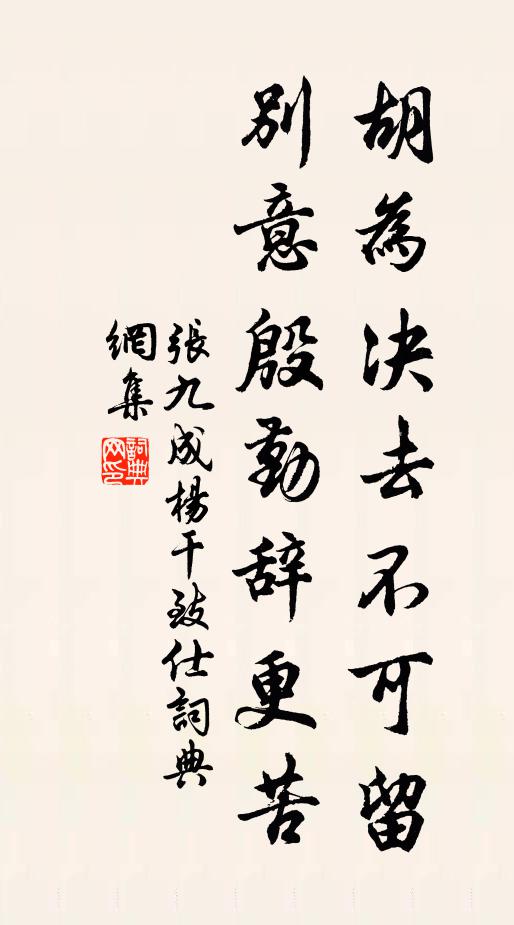 胡為決去不可留
別意殷勤辞更苦
張九成楊干致仕詞典
網集
詞典
网印